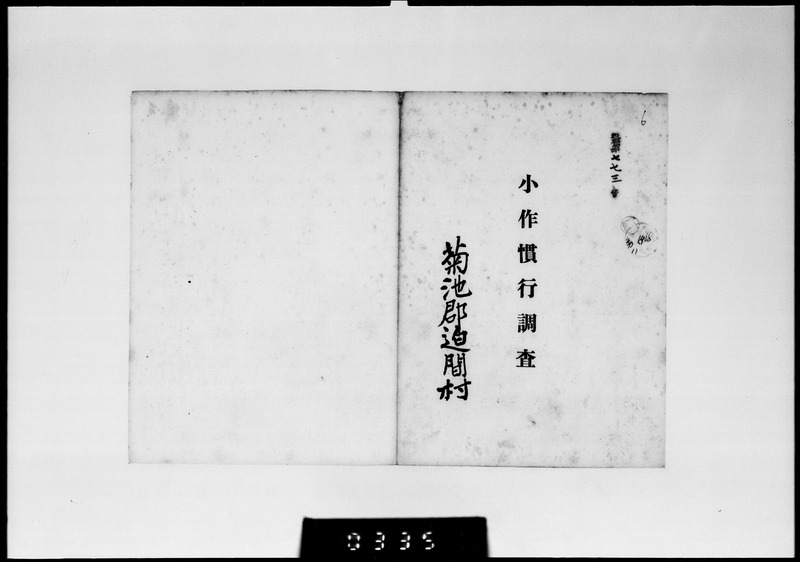 6
七七三
小作慣行調査
菊池郡迫間村
0335